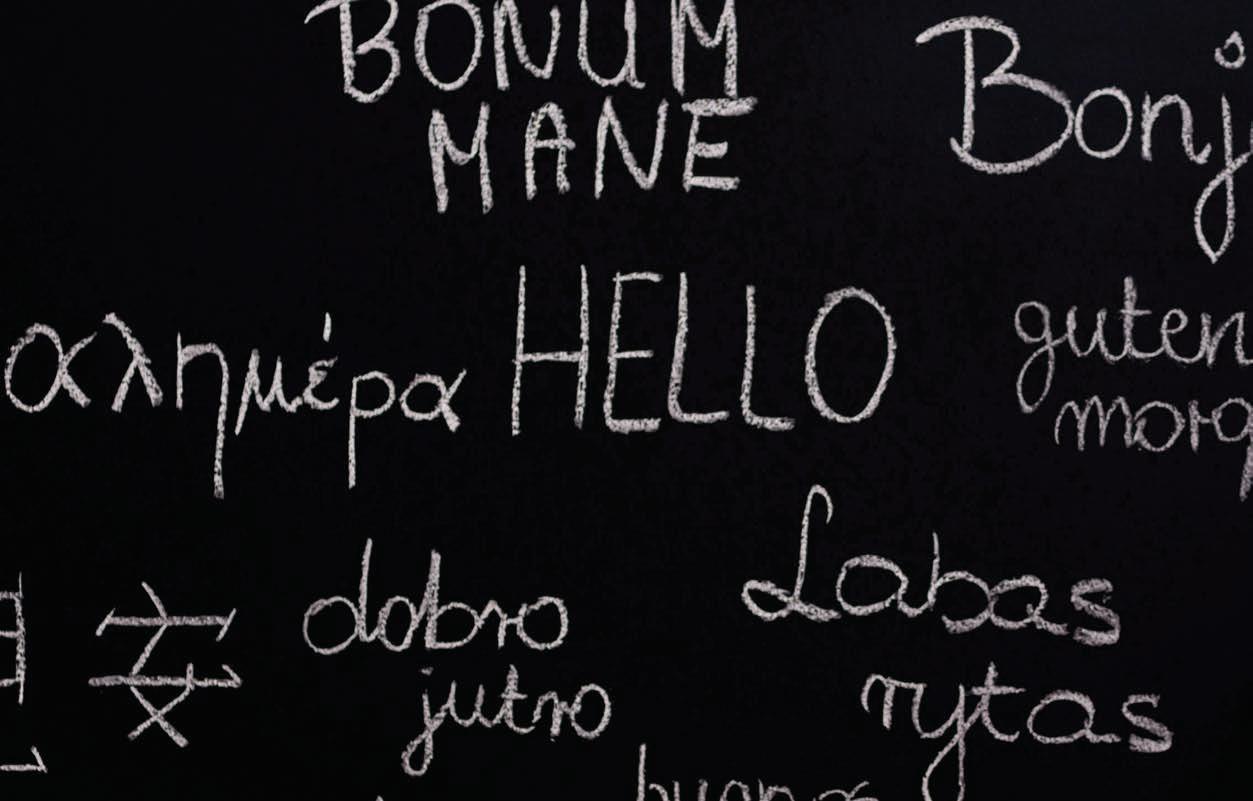 BONUM
MANE
Bonj
αλημέρα
HELLO
guten
morg
安
dobro
jutro
Labas
rytas
buenos